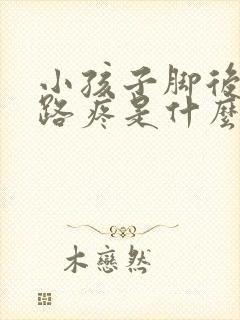 小孩子脚後
路疼是什麼
木戀然